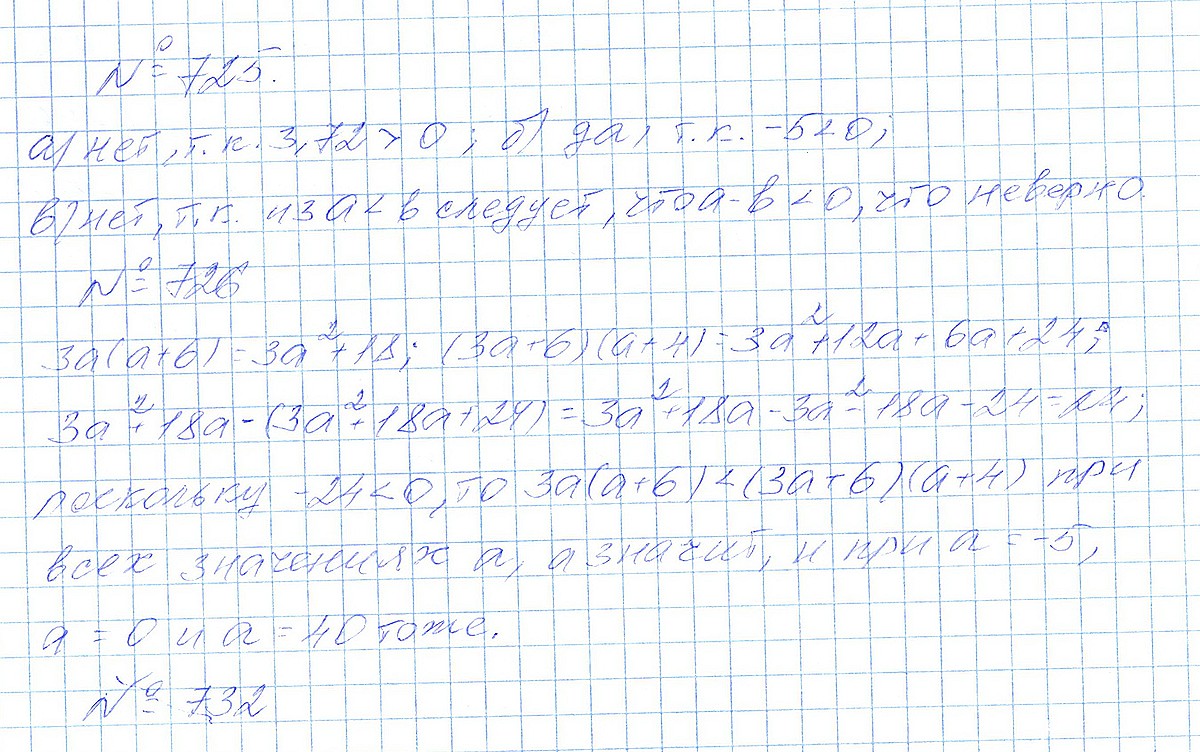 № 725.
а) нет, т.к. 3,72 > 0; б) да, т.к. -5<0;
в) нет, т.к. из а < в следует, что а-в <0, что неверно.
№ 726
3а(а+6) = 3а²+18; (3а+6)(а+4)=3а²+12а+6а+24;
3а²+18а-(3а²+18а+24) = 3а²+18а-3а²-18а-24=-24;
поскольку -24<0, то 3а(а+6)<(3а+6)(а+4) при
всех значениях а, а значит, и при а = -5,
а = 0 и а = 40 тоже.
№ 732